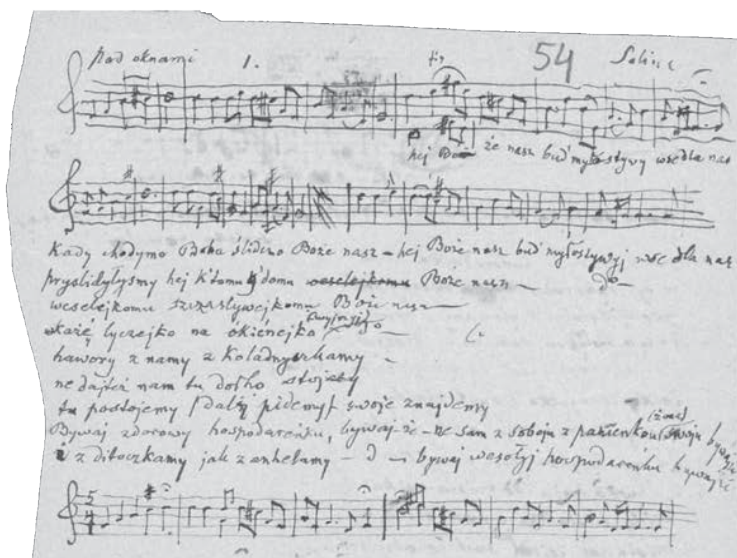 pod oknami 1. tr 54 Solina
hej Boże że nasz bud' myłostywy wse dla nas
Kady chodymo Boha ślidzmo Boże nasz – hej Boże nasz bud' myłostywyj wse dla nas
hej k'tomu d'domu Boże nasz –
weselejkomu szczastywejkomu Boże nasz –
łyczejko na okienejko
hawory z namy z Koladnyczkamy –
ne dajteż nam tu dołho stojety
tu postojemy dalij pidemy swoje znajdemy
Bywaj zdorowy hospodareńku, bywaj-że – ne sam z soboju z panieńkou (żona) swoju bywajże
i z ditoczkamy jak z anhełamy – d – bywaj wesołyj hospodareńku bywajże
5
4